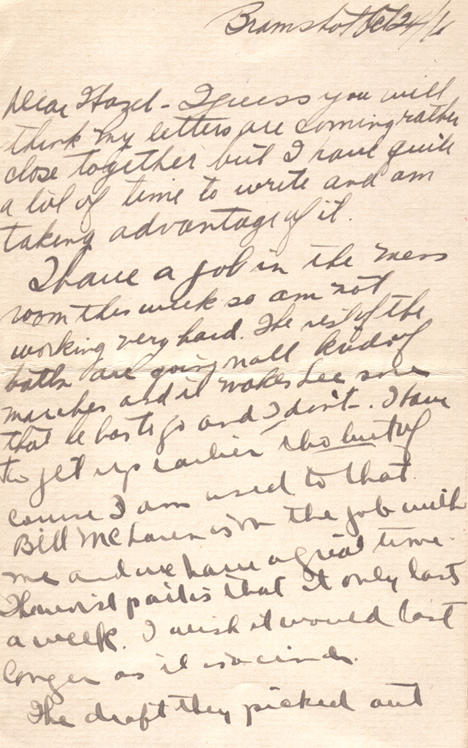 Bramshot Oct 24/16
Dear Hazel - I guess you will
think my letters are coming rather
close together but I have quite
a lot of time to write and am
taking advantage of it.
I have a job in the mess
room this week so am not
working very hard. The rest of the
battn are going on all kinds of
marches and it makes Lee sore
that he has to go and I don't. I have
to get up earlier tho but of
course I am used to that.
Bill McLaren is on the job with
me and we have a great time.
The worst part is that it only lasts
a week. I wish it would last
longer as it is a cinch.
The draft they picked out